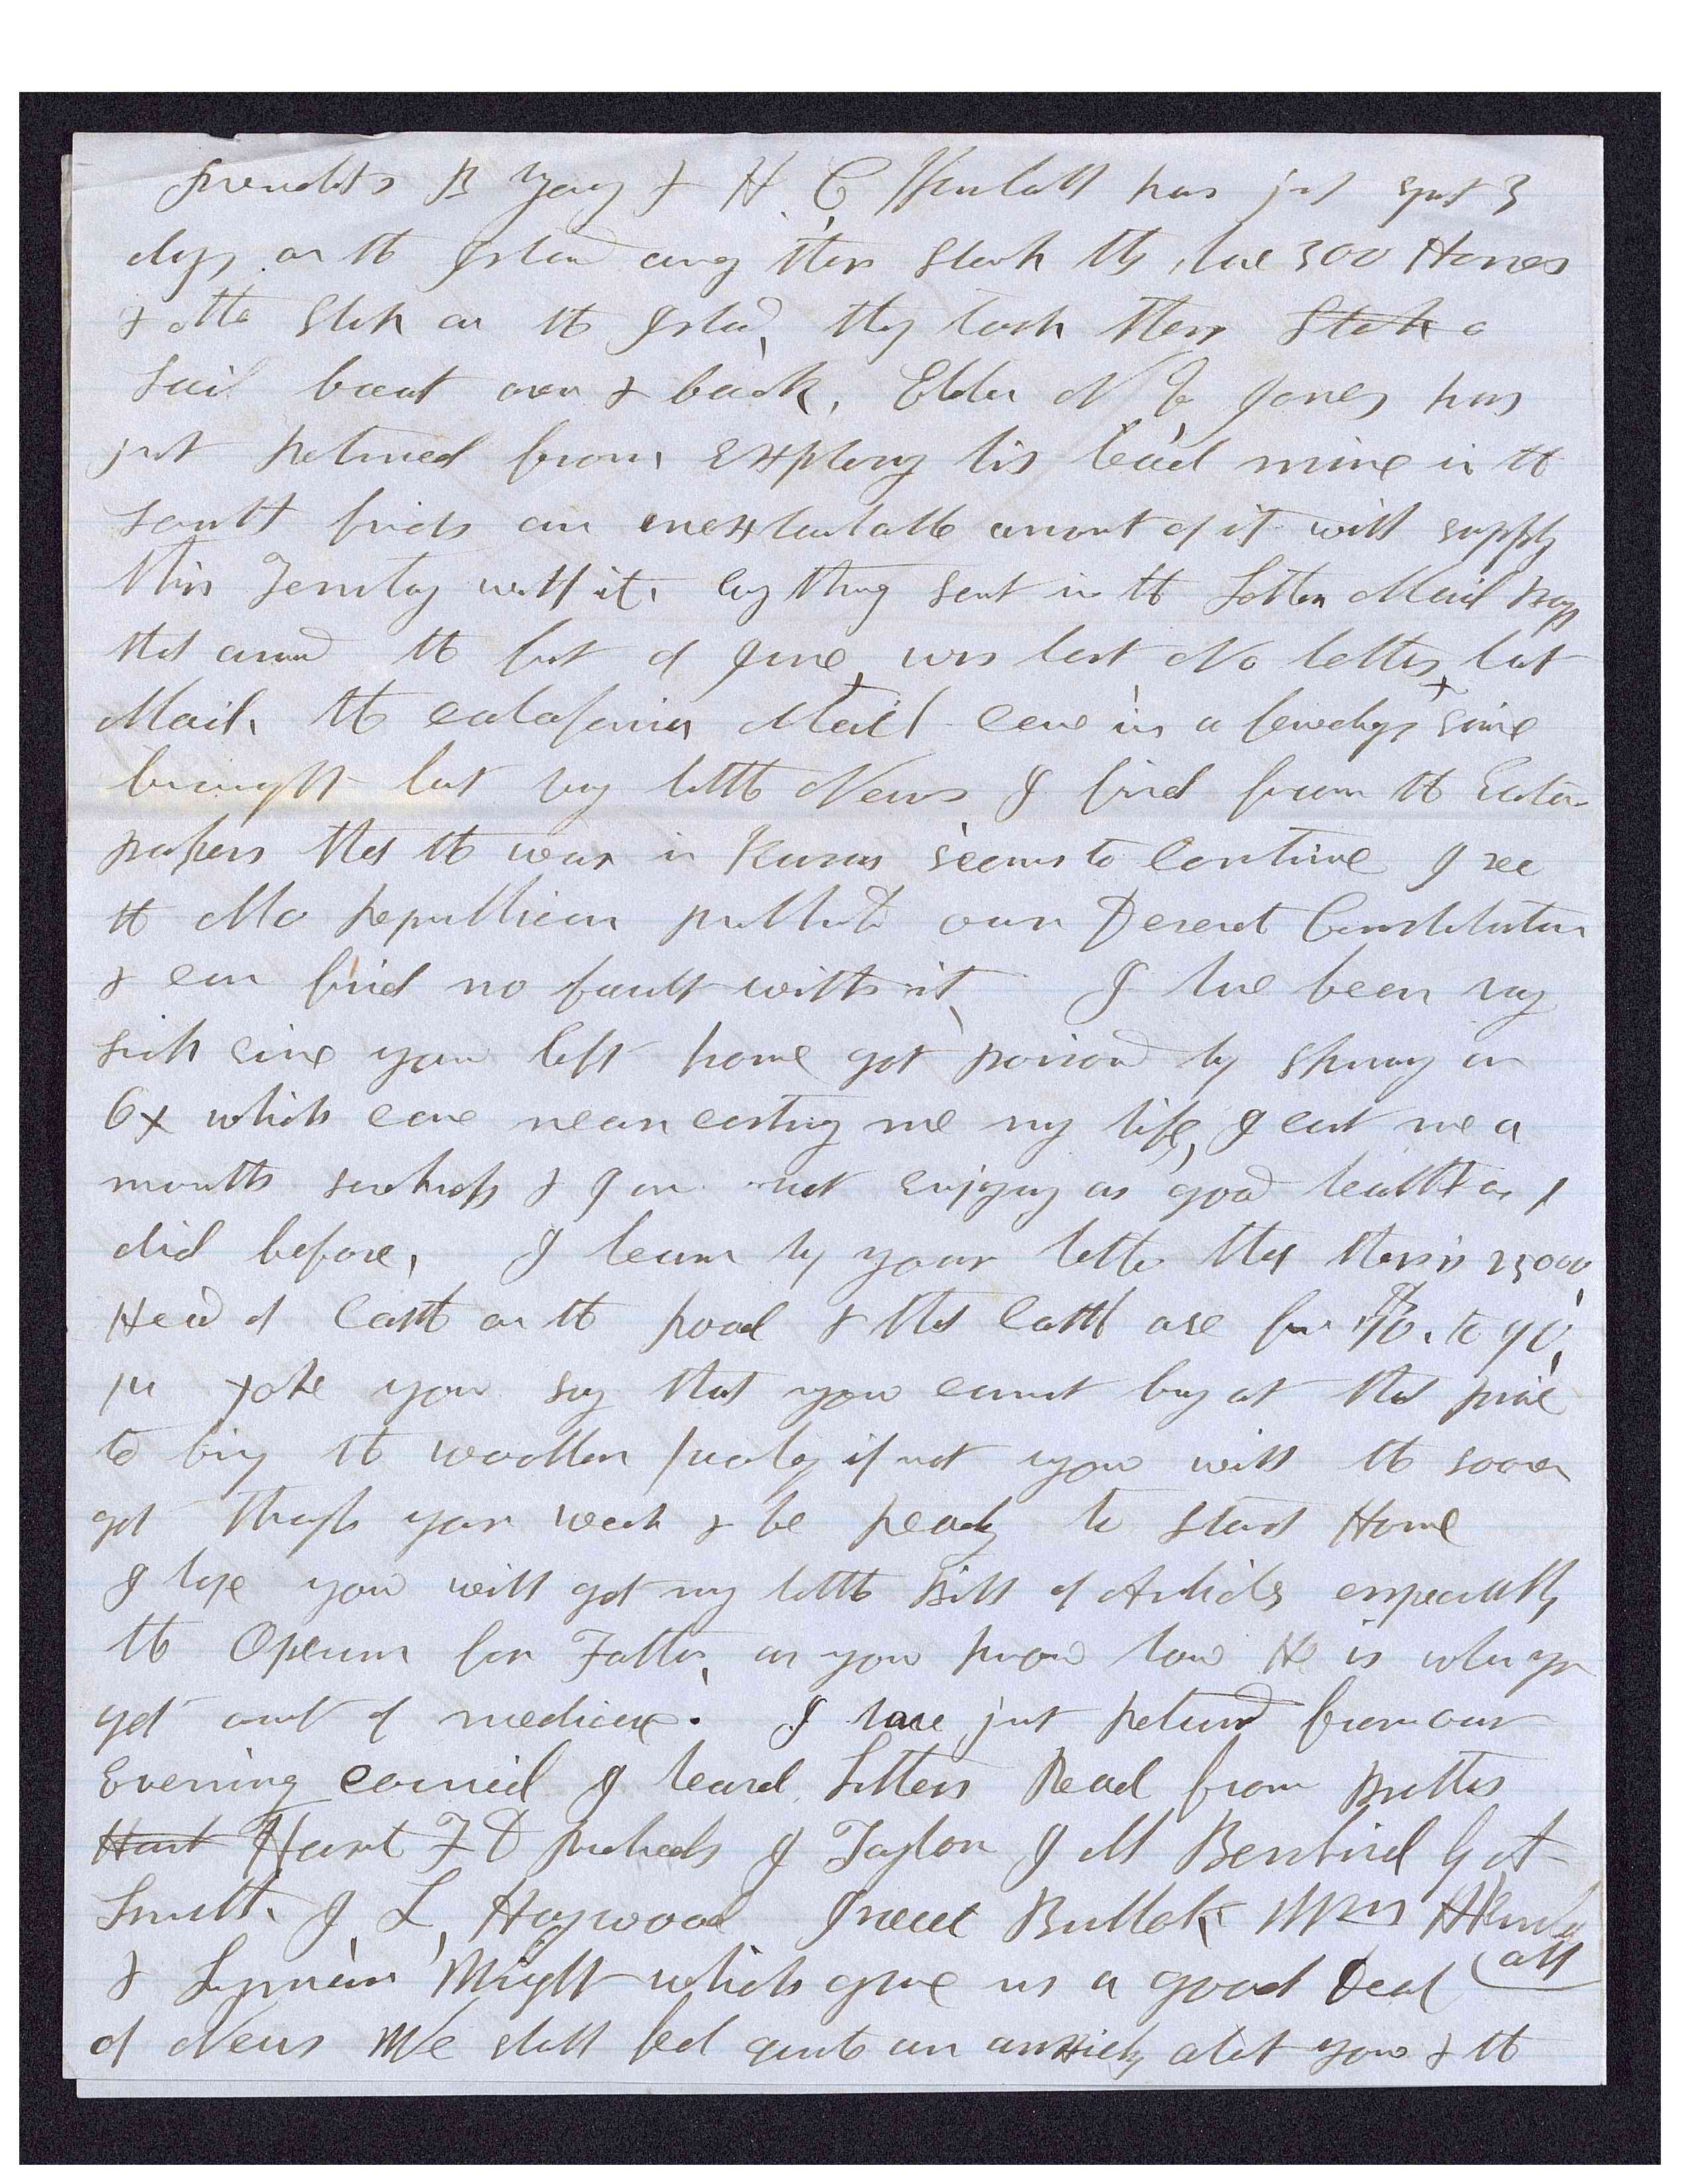 Presidets B Young & H C Kimball has just spent 3
days on the Island among their Stock they have 300 Horses
& other Stock on the Island, they took them Stock a
Sail boat over & back, Elder N V Jones has
just returned from Exploring his lead mine in the
South finds an inexhaustable amount of it will supply
this Territory with it. evry thing sent in the Letter Mail bags
that arived the first of June, was lost No letters, last
Mail. the calafornia Mail came in a few days since
brought but vry little News I find from the Eastern
papers that the war in Kansas seems to continue I see
the Mo Republican publishd our Deseret Constitution
& can find no fault with it, I have been vry
sick since you left home got poisond by skining an
ox which came near costing me my life, I cost me a
months sickness & I am not enjoying as good health as I
did before, I learn by your letter that there is 25000
Head of Cattle on the road & that Cattle are from 70. to 90,
pr yoke you say that you cannot buy at that price
to bring the woollen factory if not you will the sooner
get through your work & be ready to start Home
I hope you will get my little Bill of Articles especially
the Opeum for Father, as you know how He is when you
get out of medicine. I have just returnd from our
Evening council I heard Letters Read from Brothers
Hunt Hunt F D Richards J Taylor J M Bernhisel G A
Smith. J L, Haywood Isaac Bullock Wm H Kimb
& Lyman Wight which gave us a good Deal (all
of News We still feel quite an anxiety about you & the